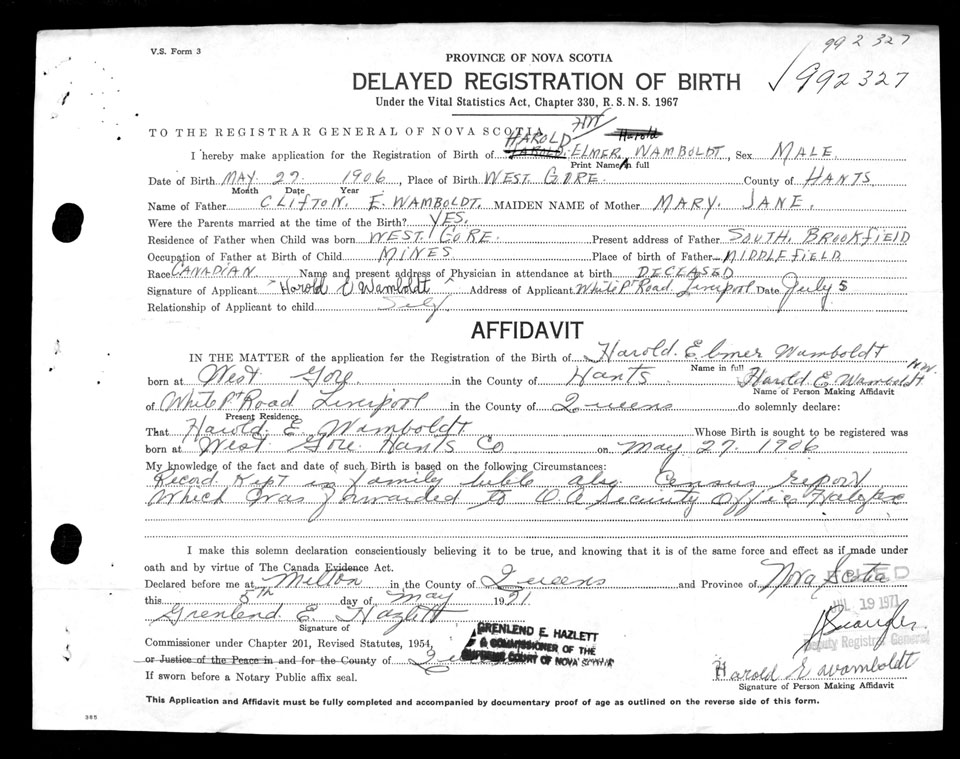 V.S. Form 3
992 327
PROVINCE OF NOVA SCOTIA
992327
DELAYED REGISTRATION OF BIRTH
Under the Vital Statistics Act, Chapter 330, R.S.N.S. 1967
HW Harold
TO THE REGISTRAR GENERAL OF NOVA SCOTIA
HAROLD
I hereby make application for the Registration of Birth of HAROLD ELMER WAMBOLDT, Sex MALE
Print Name in full
Date of Birth MAY 27 1906, Place of Birth WEST GORE County of HANTS
Month Date Year
Name of Father CLIFTON E. WAMBOLDT. MAIDEN NAME of Mother MARY JANE.
Were the Parents married at the time of the Birth? YES.
Residence of Father when Child was born WEST GORE Present address of Father SOUTH BROOKFIELD
Occupation of Father at Birth of Child MINES Place of birth of Father MIDDLEFIELD
Race CANADIAN Name and present address of Physician in attendance at birth DECEASED
Signature of Applicant Harold E Wamboldt Address of Applicant White Pt Road Liverpool Date July 5
Relationship of Applicant to child Self
AFFIDAVIT
IN THE MATTER of the application for the Registration of the Birth of Harold Elmer Wamboldt
Name in full HW.
born at West Gore in the County of Hants Harold E Wamboldt
Name of Person Making Affidavit
of White Pt Road Liverpool in the County of Queens do solemnly declare:
Present Residence
That Harold E. Wamboldt Whose Birth is sought to be registered was
born at West Gore Hants Co on May 27 1906
My knowledge of the fact and date of such Birth is based on the following Circumstances:
Record Kept in family bible also Census report
Which was forwarded to O.A Security Office Halifax
I make this solemn declaration conscientiously believing it to be true, and knowing that it is of the same force and effect as if made under
oath and by virtue of The Canada Evidence Act.
Declared before me at Milton in the County of Queens and Province of Nova Scotia
this 5th day of May 1971
JUL 19 1971
Grenlend E. Hazlett
Signature of
GRENLEND E. HAZLETT
Deputy Registrar General
Commissioner under Chapter 201, Revised Statutes, 1954,
A COMMISSIONER OF THE
or Justice of the Peace in and for the County of Queens
SUPREME COURT OF NOVA SCOTIA
Harold E Wamboldt
If sworn before a Notary Public affix seal.
Signature of Person Making Affidavit
This Application and Affidavit must be fully completed and accompanied by documentary proof of age as outlined on the reverse side of this form.
385